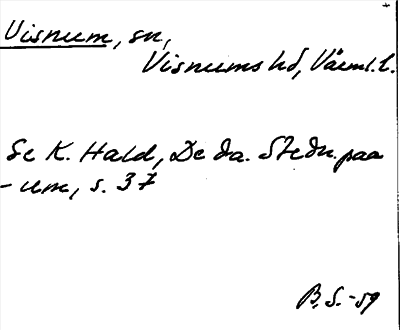 Visnum, sn,
Visnums hd, Värml. l.
Se K. Hald, De da. Stedn. paa
-um, s. 37
B. S. -59